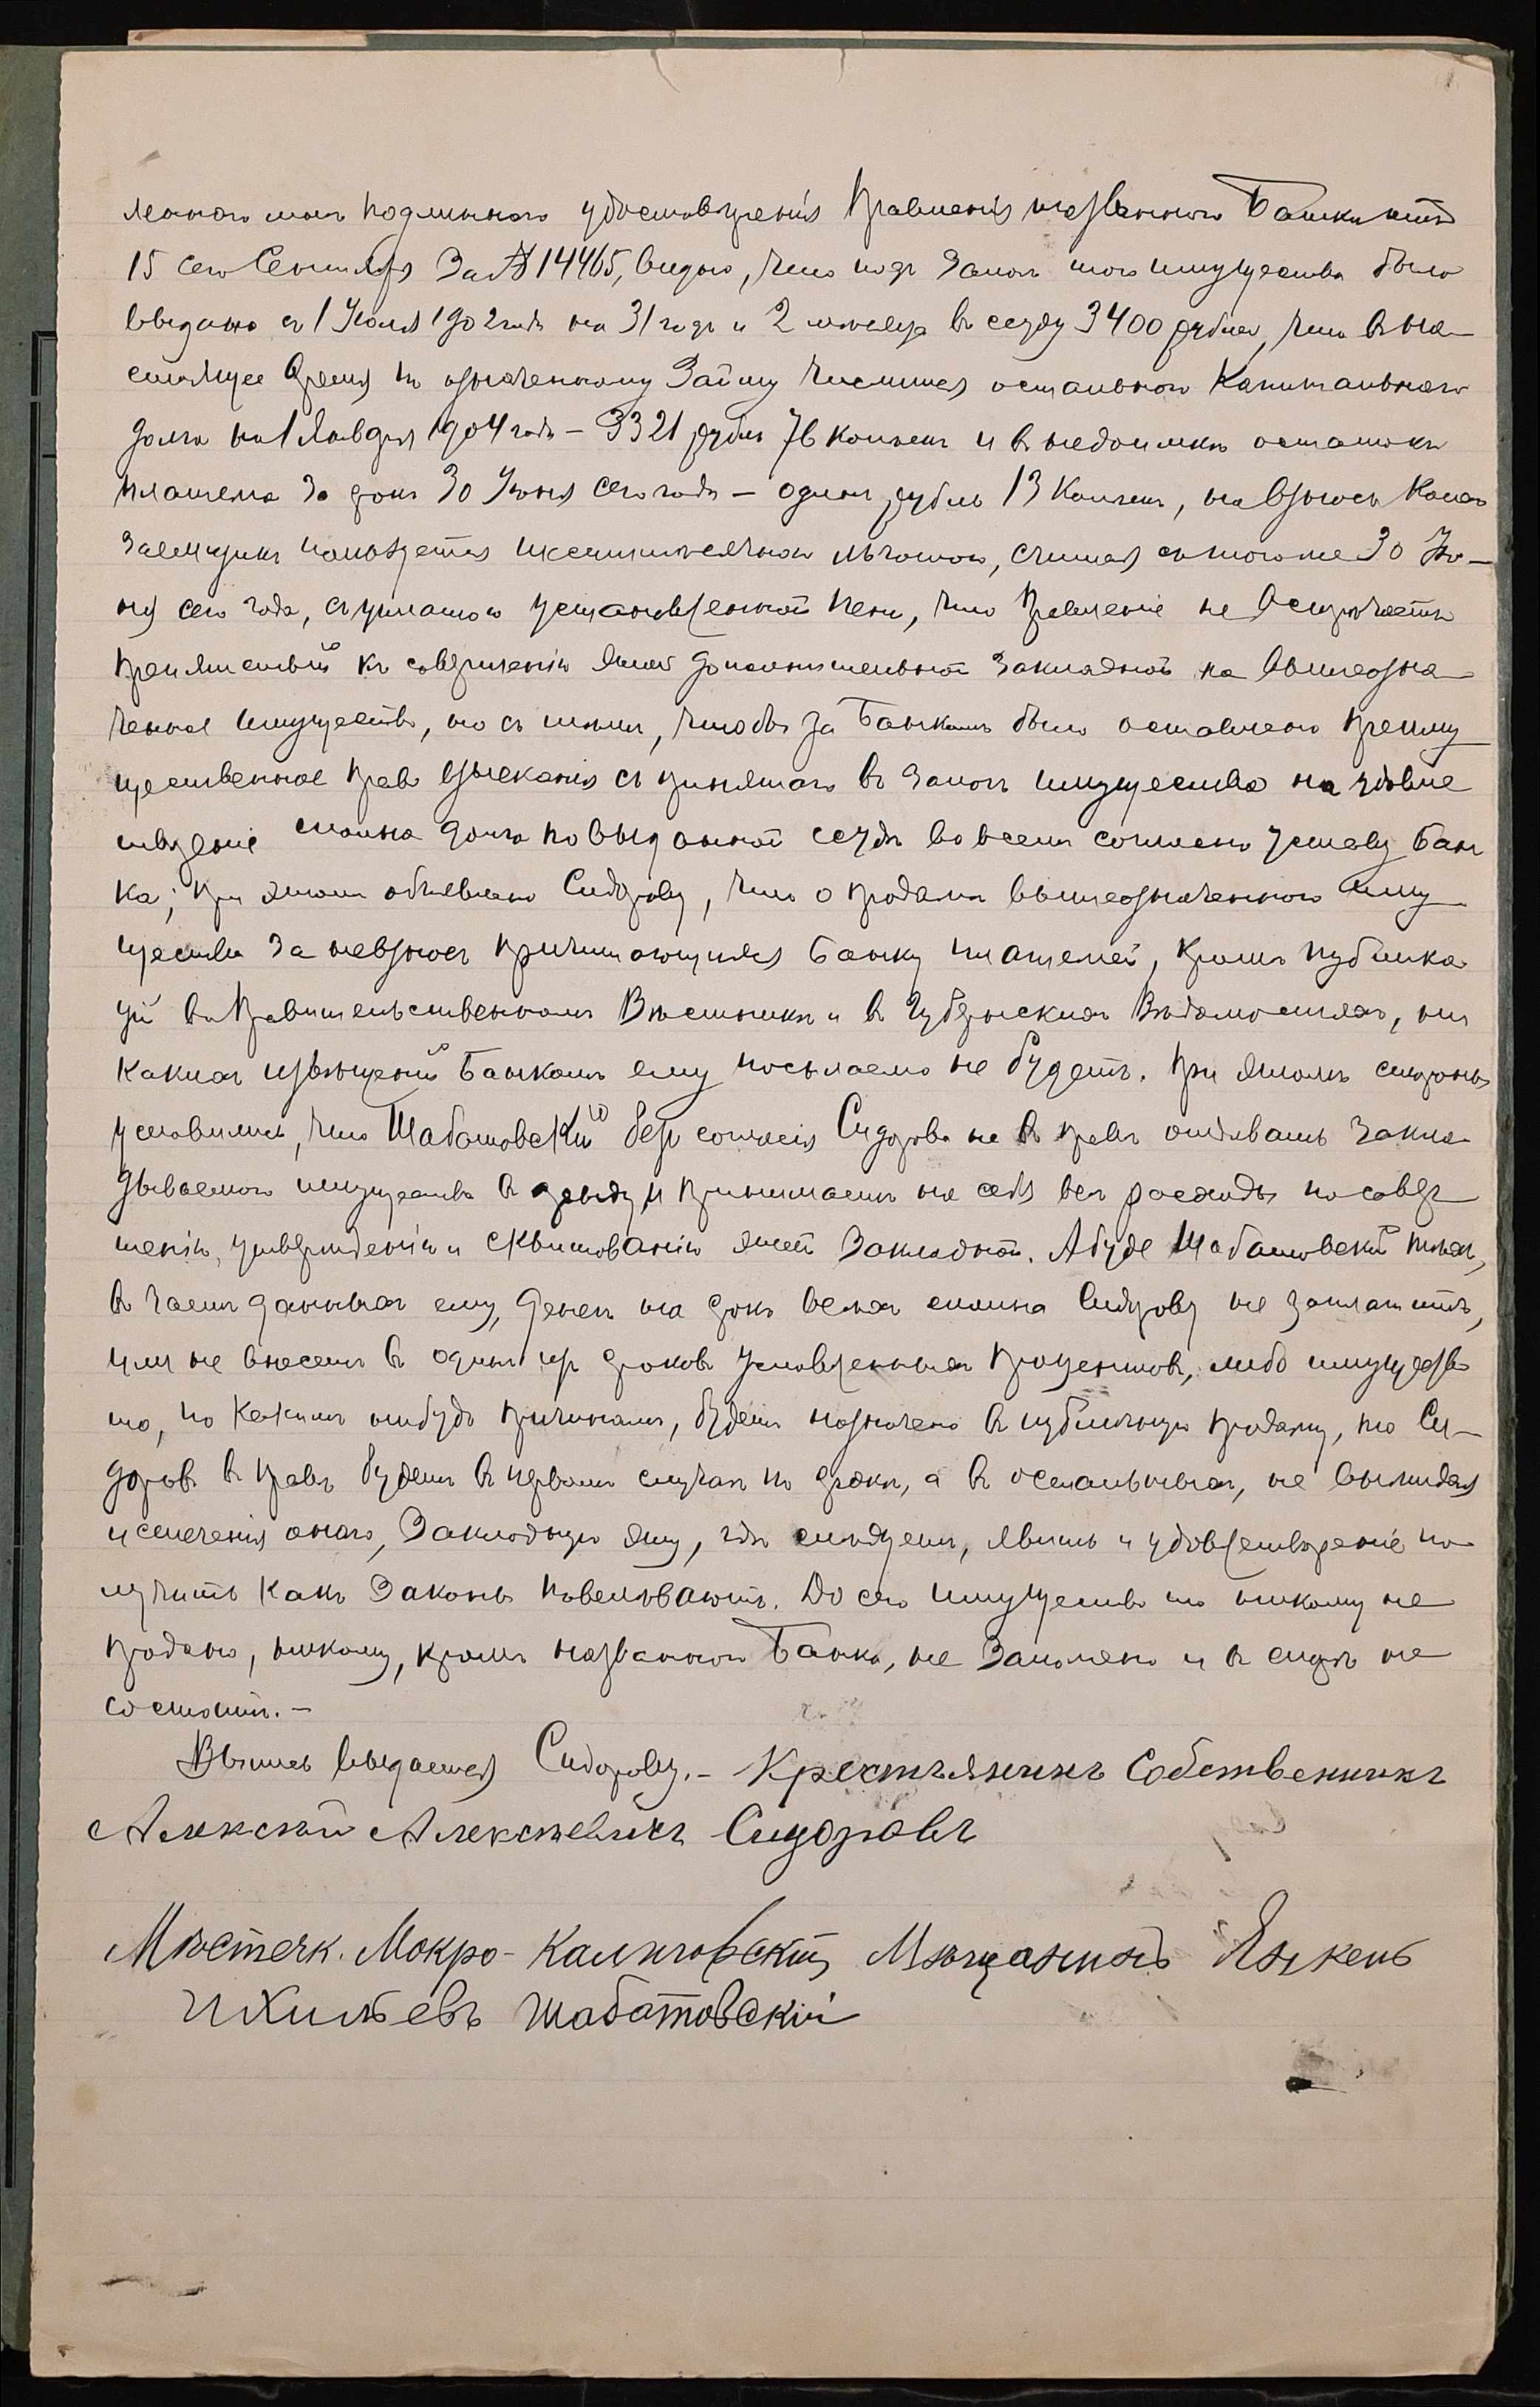 леннаго мнѣ подлиннаго удостовѣренія Правленія названнаго Банка отъ
15 сего Сентября за № 14465, видно, что подъ залогъ того имущества было
выдано съ 1 Іюля 1902 года на 31 годъ и 2 мѣсяца въ ссуду 3400 рублей, что въ на-
стоящее время по означенному займу числится остальнаго капитальнаго
долга на 1 Января 1904 года – 3321 рубль 76 копѣекъ и въ недоимкѣ остатокъ
платежа за срокъ 30 Іюня сего года – одинъ рубль 13 копѣекъ, на взносъ коего
заемщикъ пользуется шестимѣсячной льготой, считая съ того же 30 Ію-
ня сего года, съ уплатою установленной пени, что Правленіе не встрѣчаетъ
препятствій къ совершенію этой дополнительной закладной на вышеозна-
ченное имущество, но съ тѣмъ, чтобы за Банкомъ было оставлено преиму
щественное право взысканія съ принятаго въ залогъ имущества на удовле
твореніе сполна долга по выданной ссудѣ во всемъ согласно уставу Бан
ка; при этомъ объявлено Сидорову, что о продажѣ вышеозначеннаго иму
щества за невзносъ причитающихся Банку платежей, кромѣ публика
цій въ Правительственномъ Вѣстникѣ и въ Губернскихъ Вѣдомостяхъ, ни
какихъ извѣщеній Банкомъ ему посылаемо не будетъ. При этомъ стороны
условились, что Шабатовскій безъ согласія Сидорова не въ правѣ отдавать закла
дываемаго имущества въ аренду и принимаетъ на себя всѣ расходы по совер
шенію, утвержденію и сквитованію этой закладной. А буде Шабатовскій тѣхъ,
въ заемъ данныхъ ему, денегъ на срокъ всѣхъ сполна Сидорову не заплатитъ,
или не внесетъ въ одинъ изъ сроковъ условленныхъ процентовъ, либо имущество
то, по какимъ нибудь причинамъ, будетъ назначено въ публичную продажу, то Си-
доровъ въ правѣ будетъ въ первомъ случаѣ по срокѣ, а въ остальныхъ, не выжидая
истеченія онаго, закладную эту, гдѣ слѣдуетъ, явить и удовлетвореніе по
лучить какъ законы повелѣваютъ. До сего имущество то никому не
продано, никому, кромѣ названнаго Банка, не заложено и въ спорѣ не
состоитъ. –
Выпись выдается Сидорову. – Крестьянинъ Собственникъ
Алексѣй Алексѣевичъ Сидоровъ
Мѣстечк. Мокро-Калигорскій Мѣщанинъ Янкель
Ихилѣевъ Шабатовскій